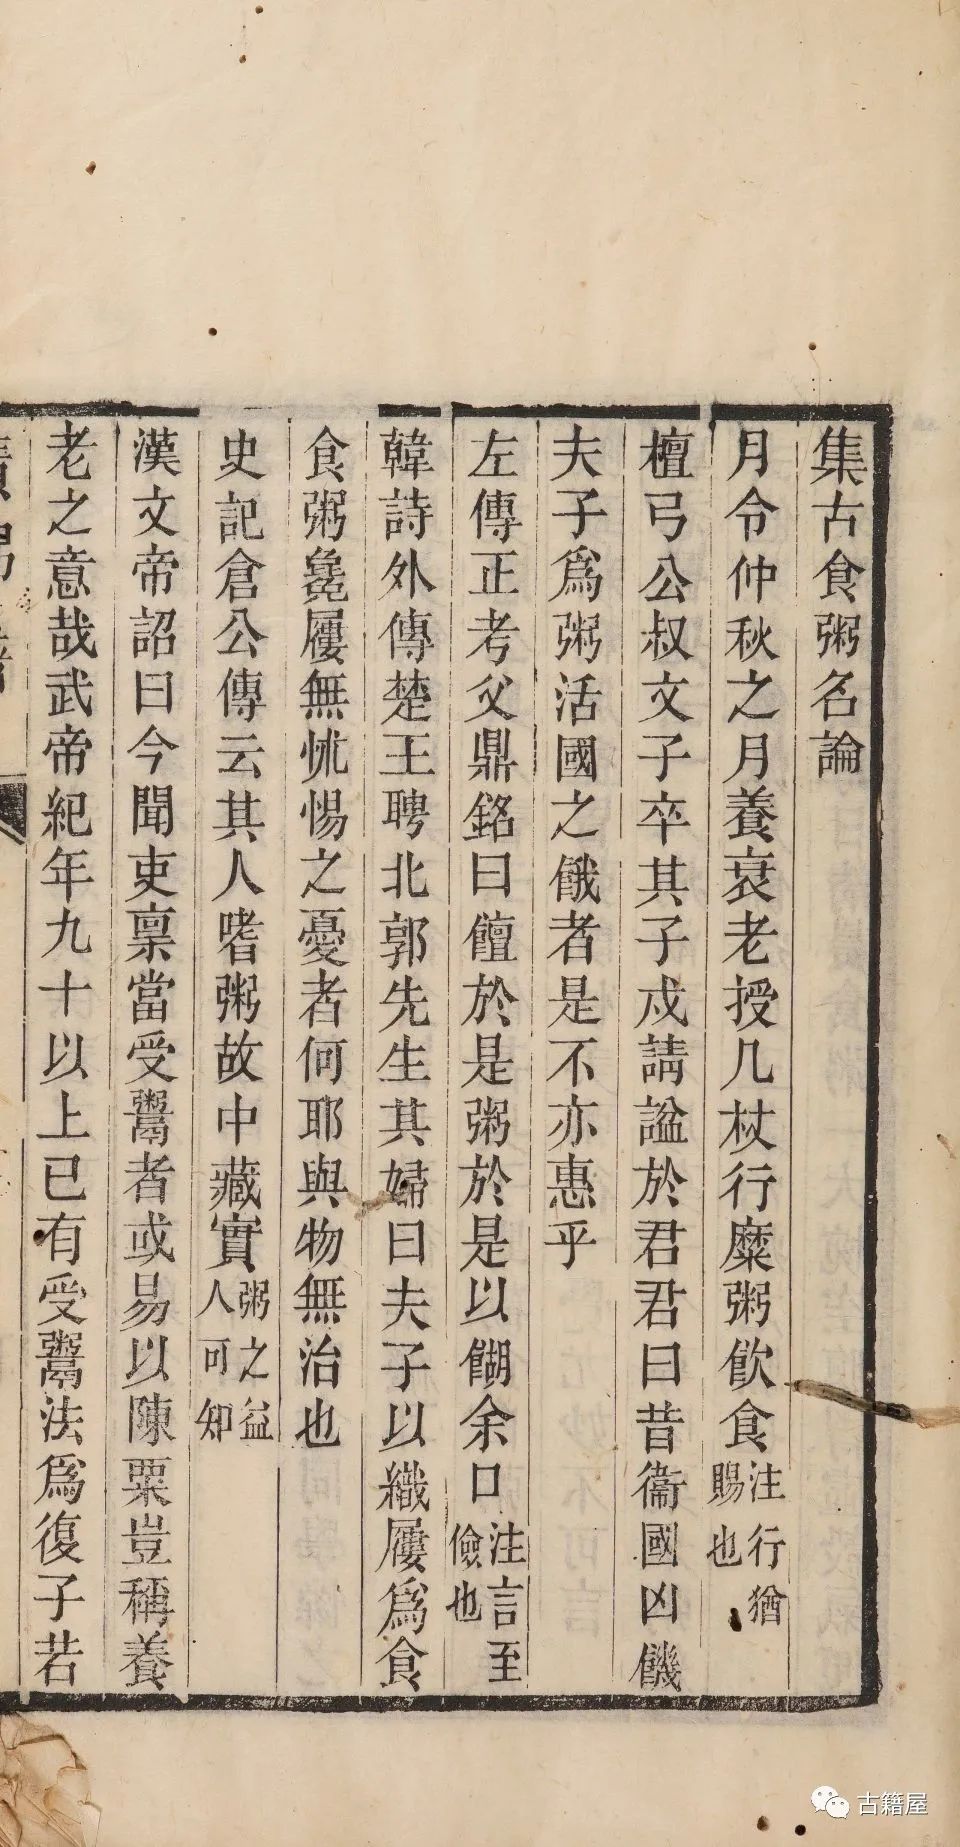 集古食粥名論
月令仲秋之月養衰老授几杖行糜粥飲食注行猶賜也
檀弓公叔文子卒其子戍請諡於君君曰昔衞國凶饑
夫子爲粥活國之餓者是不亦惠乎
左傳正考父鼎銘曰饘於是粥於是以餬余口注言至儉也
韓詩外傳楚王聘北郭先生其婦曰夫子以織屨爲食
食粥毚屨無怵惕之憂者何耶與物無治也
史記倉公傳云其人嗜粥故中藏實粥之益人可知
漢文帝詔曰今聞吏稟當受鬻者或易以陳粟豈稱養
老之意哉武帝紀年九十以上已有受鬻法爲復子若
古籍屋